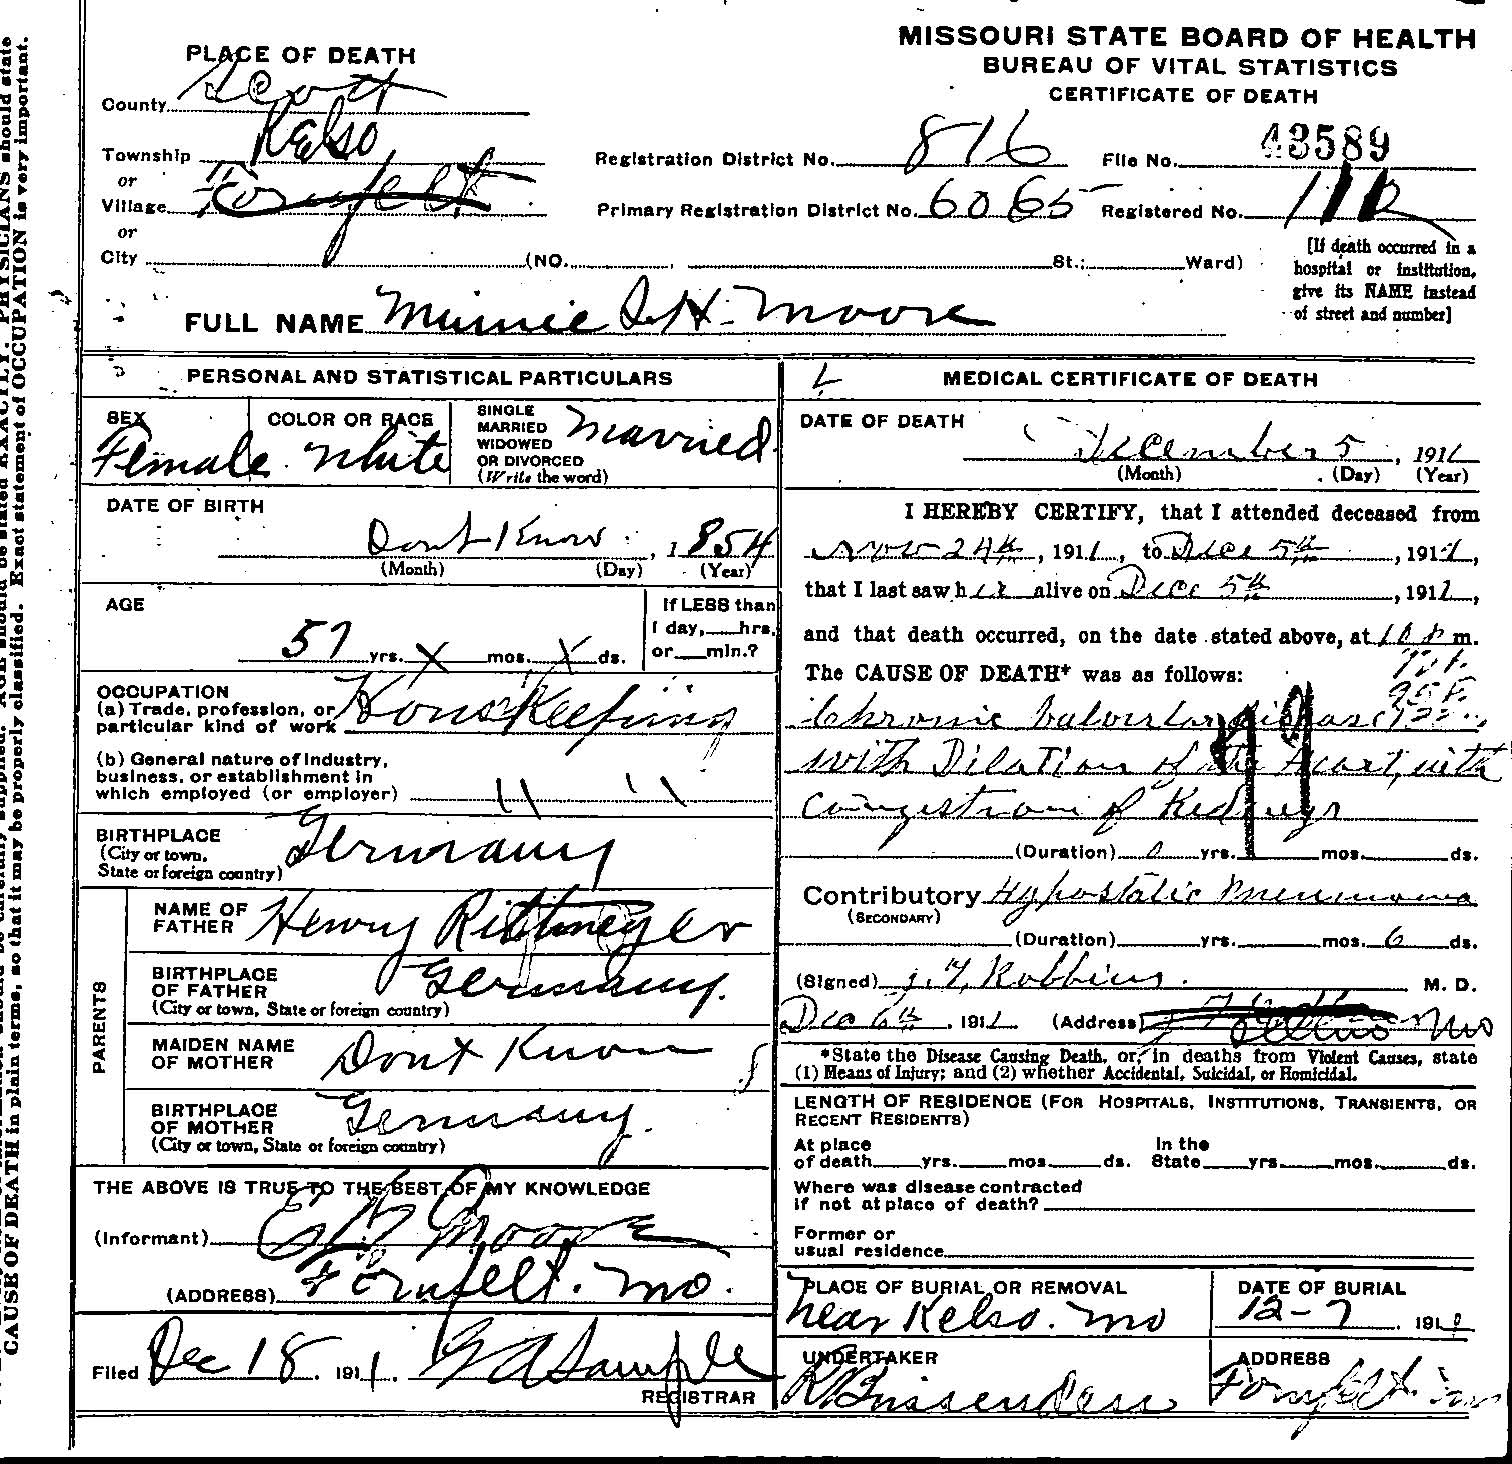 MISSOURI STATE BOARD OF HEALTH
BUREAU OF VITAL STATISTICS
CERTIFICATE OF DEATH
PLACE OF DEATH
County Scott
Township Kelso
or
Village Fornfelt
or
City (NO. , St.; Ward)
Registration District No. 816 File No. 43589
Primary Registration District No. 6065 Registered No.
[If death occurred in a
hospital or institution,
give its NAME instead
of street and number]
FULL NAME Minnie S H. Moore
PERSONAL AND STATISTICAL PARTICULARS
SEX
Female
COLOR OR RACE
White
SINGLE
MARRIED
WIDOWED
OR DIVORCED
(Write the word)
Married
DATE OF BIRTH
Dont Know , 1854
(Month) (Day) (Year)
AGE
57 yrs. X mos. X ds.
If LESS than
1 day, hrs.
or min.?
OCCUPATION
(a) Trade, profession, or
particular kind of work Houskeeping
(b) General nature of industry,
business, or establishment in
which employed (or employer) " "
BIRTHPLACE
(City or town,
State or foreign country) Germany
PARENTS
NAME OF
FATHER Henry Rittmeyer
BIRTHPLACE
OF FATHER
(City or town, State or foreign country) Germany.
MAIDEN NAME
OF MOTHER Dont Know
BIRTHPLACE
OF MOTHER
(City or town, State or foreign country) Germany.
THE ABOVE IS TRUE TO THE BEST OF MY KNOWLEDGE
(Informant) Moore
(ADDRESS) Fornfelt. Mo.
Filed Dec 18, 1911. G A Sample
REGISTRAR
MEDICAL CERTIFICATE OF DEATH
DATE OF DEATH
December 5, 1911
(Month) (Day) (Year)
I HEREBY CERTIFY, that I attended deceased from
Nov 24th, 1911, to Dec 5th, 1911,
that I last saw her alive on Dec 5th, 1911,
and that death occurred, on the date stated above, at 10 P m.
The CAUSE OF DEATH* was as follows:
Chronic Valvular Disease
with Dilation of the Heart, with
Congestion of Kidneys
79
(Duration) 0 yrs. mos. ds.
Contributory Hypostatic Pneumonia
(SECONDARY)
(Duration) yrs. mos. 6 ds.
(Signed) J. Y. Robbins. M. D.
Dec 6th, 1911 (Address) Mo
*State the Disease Causing Death, or, in deaths from Violent Causes, state
(1) Means of Injury; and (2) whether Accidental, Suicidal, or Homicidal.
LENGTH OF RESIDENCE (FOR HOSPITALS, INSTITUTIONS, TRANSIENTS, OR
RECENT RESIDENTS)
At place In the
of death yrs. mos. ds. State yrs. mos. ds.
Where was disease contracted
if not at place of death?
Former or
usual residence
PLACE OF BURIAL OR REMOVAL
Near Kelso. Mo
DATE OF BURIAL
12-7, 191
UNDERTAKER
ADDRESS
Fornfelt.
CAUSE OF DEATH in plain terms, so that it may be properly classified. Exact statement of OCCUPATION is very important.